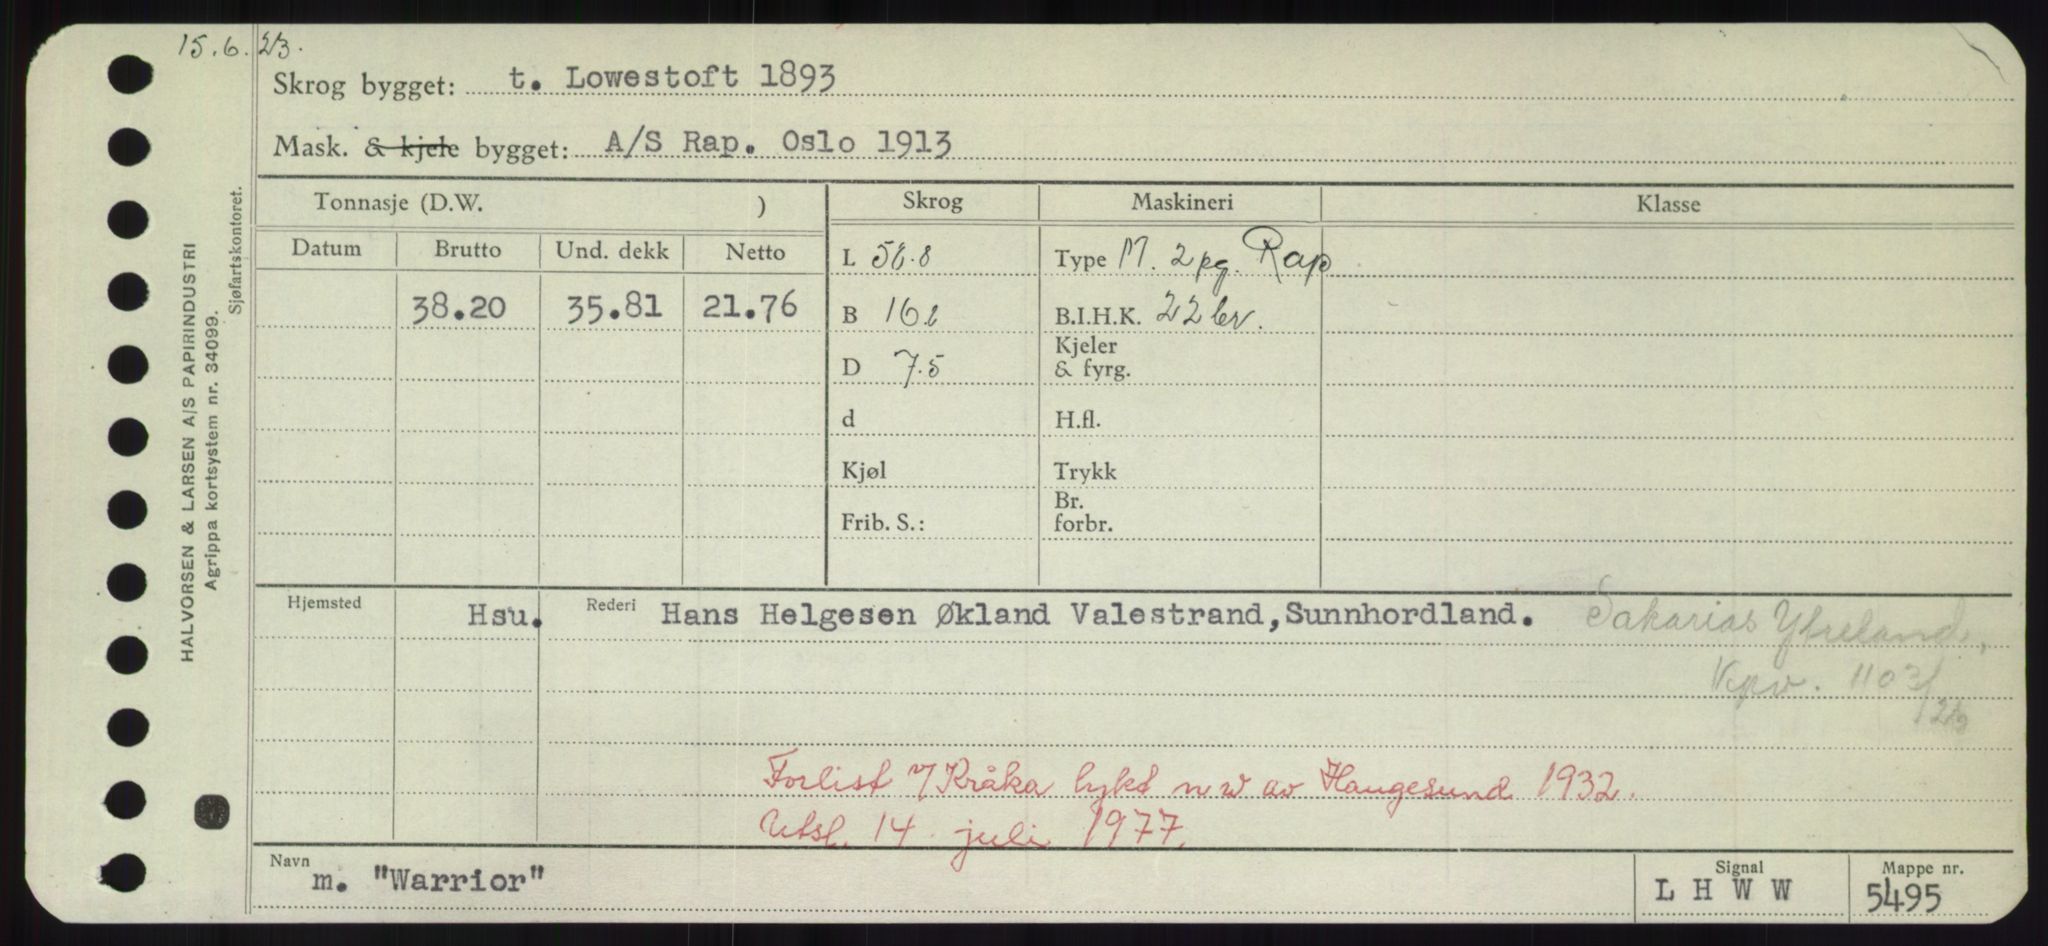 15.6.23.
Skrog bygget: t. Lowestoft 1893
Mask. & kjele bygget: A/S Rap. Oslo 1913
HALVORSEN & LARSEN A/S PAPIRINDUSTRI
Agrippa kortsystem nr. 34099.
Sjøfartskontoret.
Tonnasje (D.W. ) Skrog Maskineri Klasse
Datum Brutto Und. dekk Netto
L 56.8 Type M. 2 pg. Rap
38.20 35.81 21.76 B 16.2 B.I.H.K. 22 br.
D 7.5 Kjeler & fyrg.
d H.fl.
Kjøl Trykk
Frib. S.: Br. forbr.
Hjemsted Hsu. Rederi Hans Helgesen Økland Valestrand,Sunnhordland. Sakarias
1103/23
Forlist v/ Kråka lykt n w av Haugesund 1932.
Utsl. 14. juli 1977.
Navn m. "Warrior" Signal L H W W Mappe nr. 5495